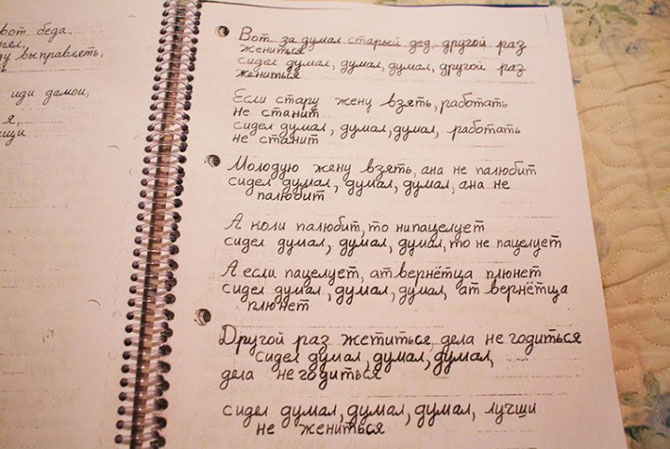 вот беда,
ду выправлять,
иди дамои,
я,
Вот за думал старый дед, другой раз
жениться
сидел думал, думал, думал, другой раз
жениться
Если стару жену взять, работать
не станит
сидел думал, думал, думал, работать
не станит
Молодую жену взять, ана не палюбит
сидел думал, думал, думал, ана не
палюбит
А коли палюбит, то нипацелует
сидел думал, думал, думал, то не пацелует
А если пацелует, ат вернётца плюнет
сидел думал, думал, думал, ат вернётца
плюнет
Другой раз жетиться, дела не годиться
сидел думал, думал, думал,
дела не годиться
сидел думал, думал, думал, лучши
не жениться